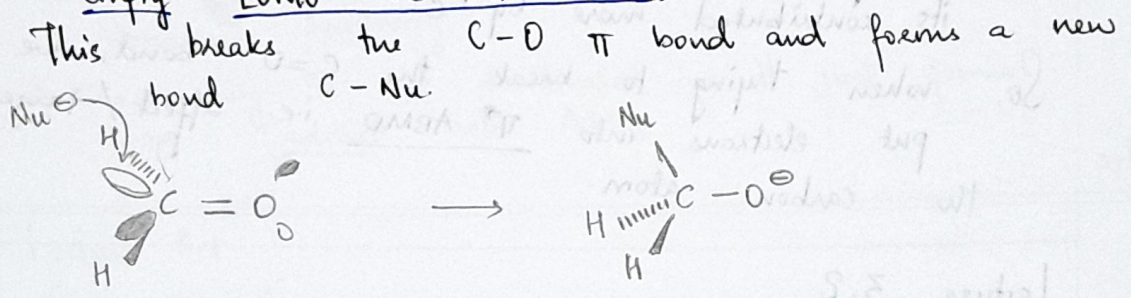 empty LUMO
This breaks the C-O π bond and forms a new
bond C - Nu.
Nu⊖
H
C = O
H
Nu
H C - O⊖
H